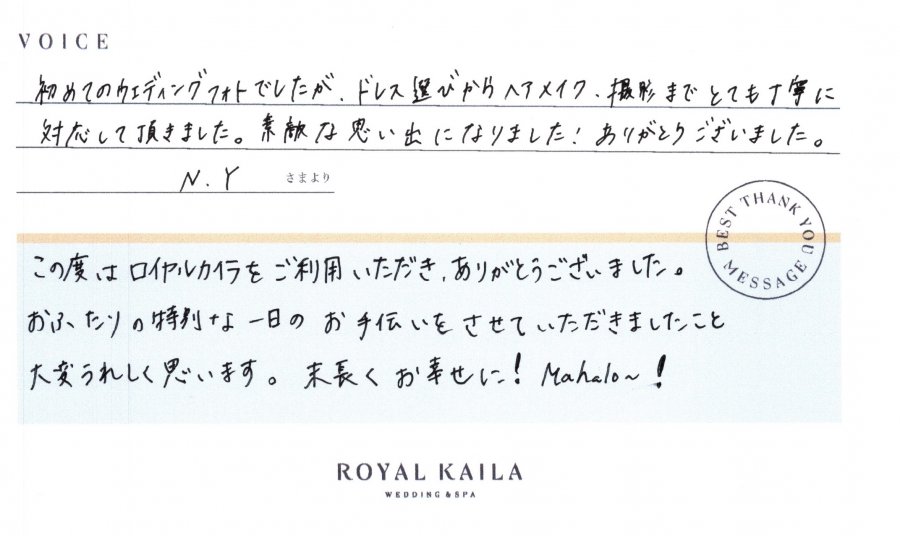 VOICE
初めてのウエディングフォトでしたが、ドレス選びからヘアメイク、撮影までとても丁寧に
対応して頂きました。素敵な思い出になりました！ありがとうございました。
N.Y さまより
BEST THANK YOU MESSAGE
この度はロイヤルカイラをご利用いただき、ありがとうございました。
おふたりの特別な一日のお手伝いをさせていただきましたこと
大変うれしく思います。末長くお幸せに！Mahalo~！
ROYAL KAILA
WEDDING & SPA